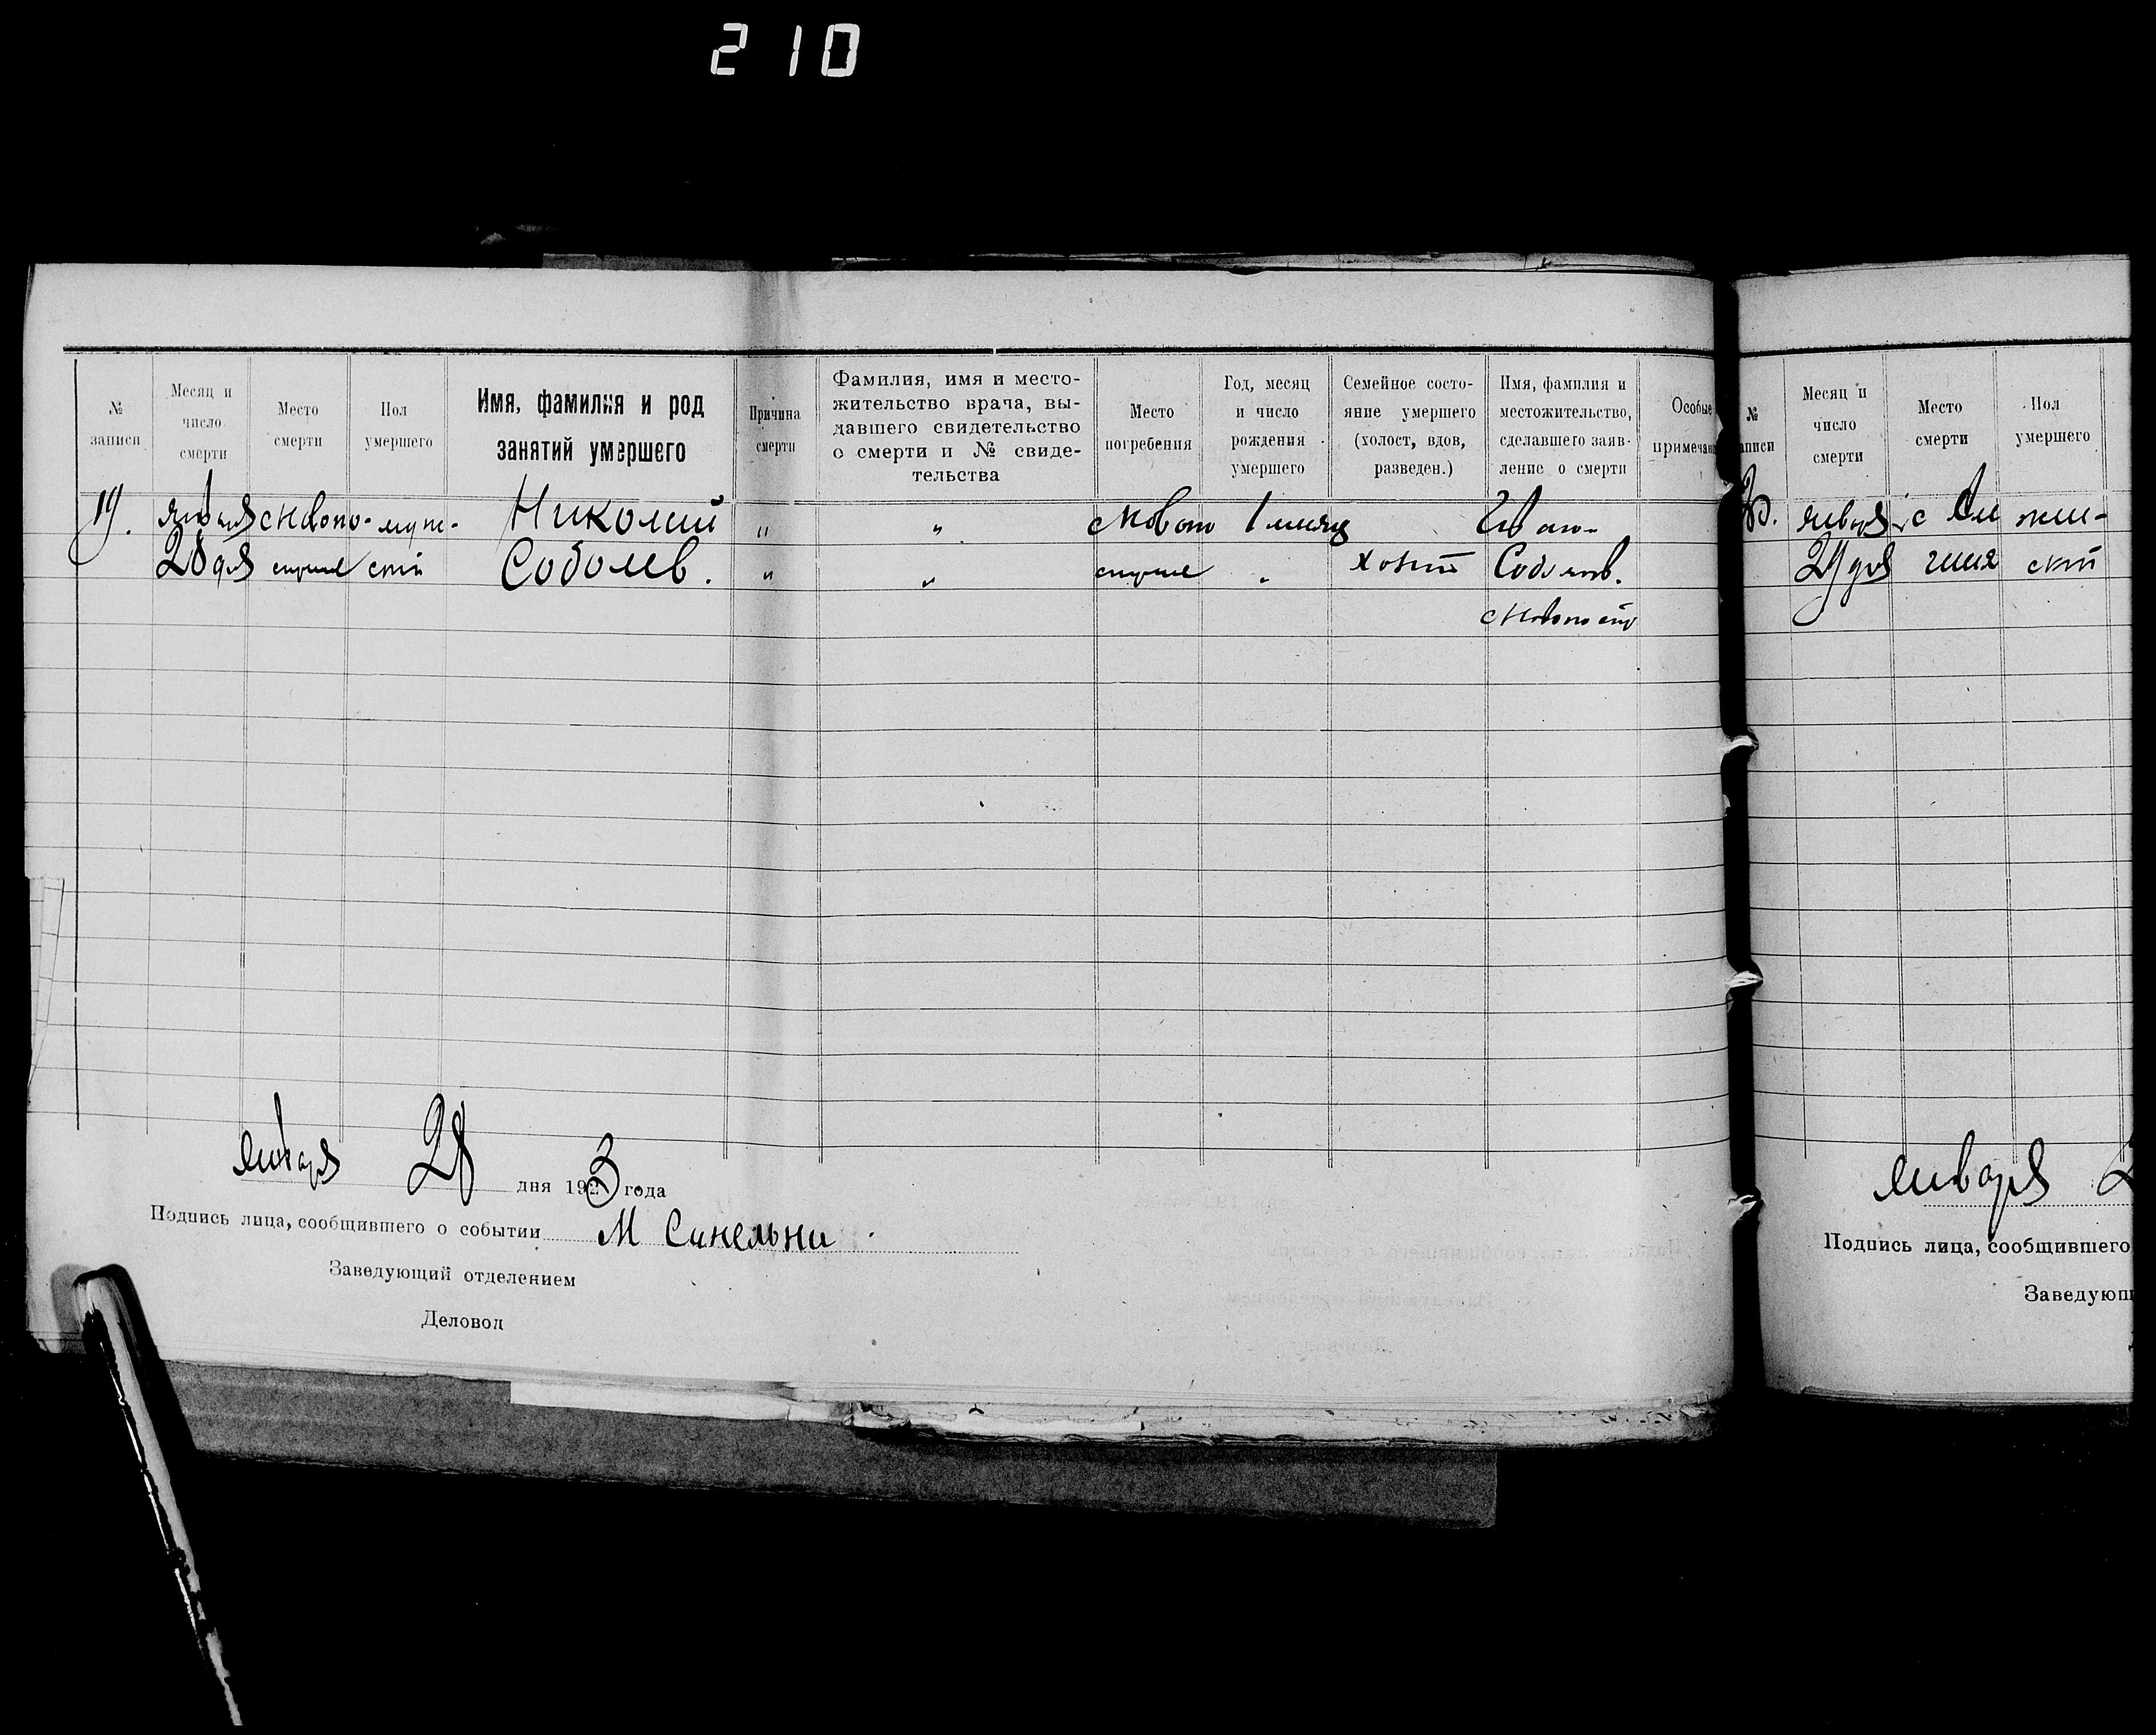 210
№ записи
Месяц и число смерти
Место смерти
Пол умершего
Имя, фамилия и род занятий умершего
Причина смерти
Фамилия, имя и место-
жительство врача, вы-
давшего свидетельство
о смерти и № свиде-
тельства
Место погребения
Год, месяц и число рождения умершего
Семейное состо-
яние умершего
(холост, вдов,
разведен.)
Имя, фамилия и
местожительство,
сделавшего заяв-
ление о смерти
Особые
примечан
19. января Николай " " 1 месяц
28 дня ский Соболев. " " " Соболев.
января 28 дня 1923 года
Подпись лица, сообщившего о событии М Синельни
Заведующий отделением
Деловод
№
аписи
Месяц и число смерти
Место смерти
Пол умершего
января с
дня ский
января 2
Подпись лица, сообщившего
Заведующ